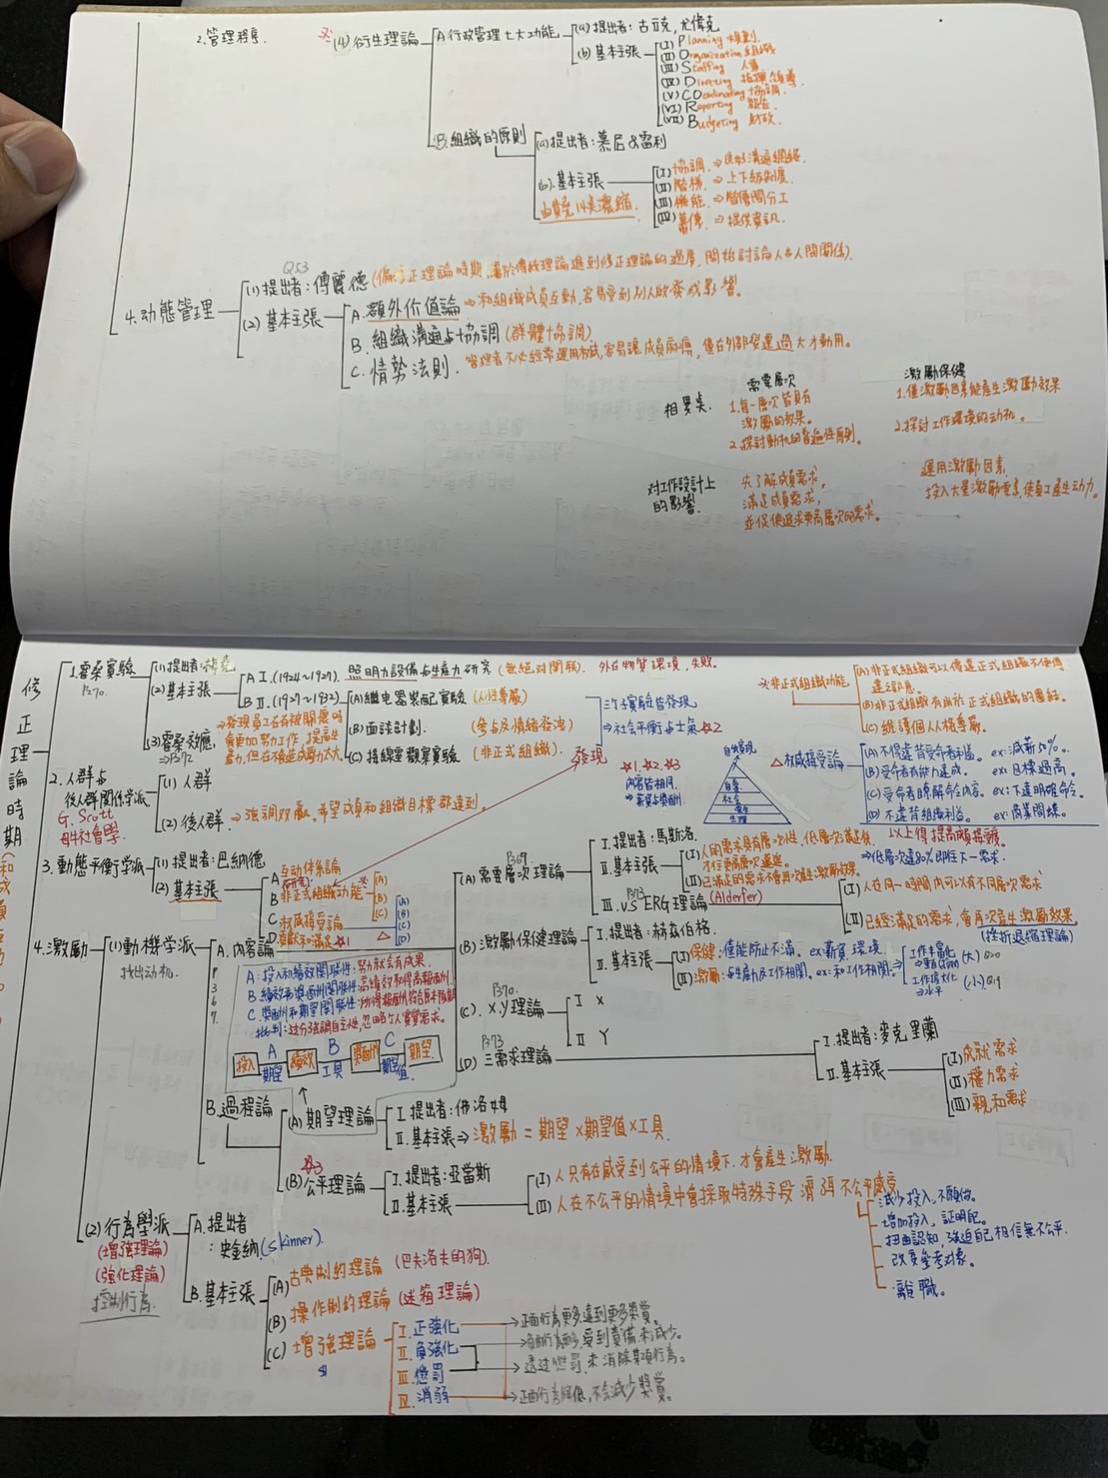 2.管理程序.
(4)衍生理論
A 行政管理七大功能
(a)提出者:古立克,尤偉克
(b)基本主張
(I) Planning 規劃
(II) Organization 組織
(III) Staffing 人事
(IV) Directing 指揮領導
(V) COordinating 協調.
(VI) Reporting 報告
(VII) Budgeting 財政
B.組織的原則
(a)提出者:慕尼&雷利
(b).基本主張
(I)協調.⇒良好溝通網絡
(II)階梯.⇒上下級制度.
(III)機能.⇒階層間分工
(IV)幕僚.⇒提供資訊.
4.动態管理
Q53
(1)提出者:傅麗德
(2)基本主張
A.額外价值論⇒和組織成員互動,容易受到別人啟發或影響。
B.組織溝通与協調(群體協調)
C.情勢法則.
需要層次
激勵保健
相異奌.
1.每一層次皆具有
激勵的效果。
2.探討動机的普遍性原則。
1.僅激勵因素能產生激勵效果
2.探討工作環境的动机。
对工作設計上
的影響.
先了解成員需求,
滿足成員需求,
並促使追求更高層次的需求。
運用激勵因素,
投入大量激勵要素,使員工產生动力。
修正理論時期
1.霍桑實驗
P270.
(1)提出者:梅堯
(2)基本主張
A I.(1924~1927).照明力設備与生產力研究(無絕对関聯).外在物質環境,失敗.
B II.(1927~1932)
(A)繼电器裝配實驗(人格尊嚴)
(B)面談計劃.(參与及情緒發洩)
(C)接線室觀察實驗(非正式組織).
三个實驗皆發現
⇒社会平衡与士氣☆2
發現
(3)霍桑效應.
☆非正式組織功能
(A)非正式組織可以傳達正式組織不便傳
達之訊息。
(B)非正式組織有助於正式組織的團結。
(C)維護個人人格尊嚴。
☆1.☆2.☆3
內容皆相同.
自我實現
自尊.
社会
安全
生理
△权威接受論
(A)不得違背受命者利益。ex:減薪50%。
(B)受命者有能力達成。ex:目標過高。
(C)受命者瞭解命令內容。ex:下達明確命令。
(D)不違背組織利益。ex:商業間諜。
2.人群与
後人群関係学派
G. Scott
(1)人群
(2)後人群.⇒強調双贏.希望成員和組織目標都達到。
3.動態平衡学派
(1)提出者:巴納德
(2)基本主張
A 互动体系論
B 非正式組織功能
(A)
(B)
(C)
C 权威接受論
△
(A)
(B)
(C)
(D)
D.貢獻和滿足☆1
4.激勵
(1)動機学派
找出动机.
A.內容論
P
3
6
7.
(A)需要層次理論
P369.
I.提出者:馬斯洛.
II.基本主張
(I)人的需求具有層次性,低層次滿足後,
才往更高層次邁進。
(II)已滿足的需求不會再次產生激勵效果。
⇒低層次達80%即往下一需求.
III.VS ERG理論(Alderfer)
P373
(I)人在同一時間內可以有不同層次需求
(II)已經滿足的需求,會再次產生激勵效果
(挫折退縮理論)
(B)激勵保健理論
I.提出者:赫茲伯格.
II.基本主張
(I)保健:僅能防止不滿。ex:薪資.環境.
(II)激勵:与生產力及工作相関。ex:和工作相関。
⇒
工作丰富化
⇒垂直行動 (大)
工作擴大化
⇒水平 (小)
(C).X.Y理論
P370.
I X
II Y
(D)三需求理論
P373
I.提出者:麥克里蘭
II.基本主張
(I)成就需求
(II)權力需求
(III)親和需求
A:投入和績效関聯性:努力就会有成果.
B:績效和獎酬関聯性:高績效取得高報酬.
批判:过分強調自主性,忽略个人實質需求。
投入 A期望 績效 B工具 獎酬 C期望值. 期望.
B.過程論
(A)期望理論
I.提出者:佛洛姆
II.基本主張⇒激勵=期望×期望值×工具.
☆3
(B)公平理論
I.提出者:亞當斯
II.基本主張
(I)人只有在感受到公平的情境下.才會產生激勵.
(II)人在不公平的情境中會採取特殊手段消弭不公平感受
減少投入,不願做。
增加投入,証明配。
扭曲認知,強迫自己相信無不公平.
改变參考对象。
離職。
(2)行為學派
(增強理論)
(強化理論)
控制行為.
A.提出者
:史金納(skinner).
B.基本主張
(A)古典制約理論(巴夫洛夫的狗).
(B)操作制約理論(迷箱理論)
(C)增強理論
I.正強化→正面行為更多,達到更多獎賞。
II.負強化→負面行為更少,受到責備來減少。
III.懲罰→透过懲罰,來消除某項行為。
IV.消弱→正面行為降低,不会減少獎賞。